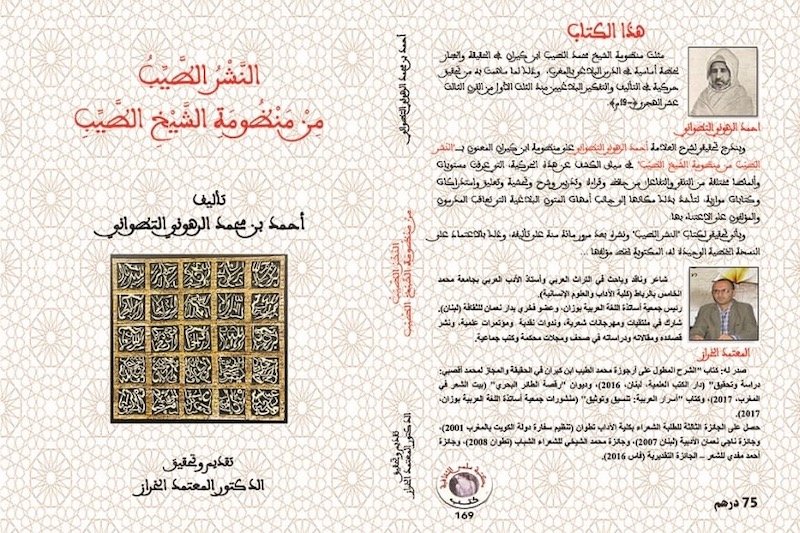 النَّشْرُ الطَّيِّبُ
مِنْ مَنْظُومَةِ الشَّيْخِ الطَّيِّبِ
تأليف
أحمد بن محمد الرهوني التطواني
تقديم وتحقيق
الدكتور المعتمد الخراز
أحمد بن محمد الرهوني التطواني
النَّشْرُ الطَّيِّبُ
مِنْ مَنْظُومَةِ الشَّيْخِ الطَّيِّبِ
تقديم وتحقيق
الدكتور المعتمد الخراز
هذا الكتاب
مثلت منظومة الشيخ محمد الطيب ابن كيران في الحقيقة والمجاز
لحظة أساسية في الدرس البلاغي بالمغرب، وذلك لما ساهمت به من تحقيق
حركية في التأليف والتفكير البلاغيين منذ الثلث الأول من القرن الثالث
عشر الهجري (-19م).
أحمد الرهوني التطواني
ويندرج تحقيقنا لشرح العلامة أحمد الرهوني التطواني على منظومة ابن كيران المعنون بـ"النشر
الطيب من منظومة الشيخ الطيب" في سياق الكشف عن هذه الحركية، التي عرفت مستويات
وأنماطا مختلفة من التلقي والتفاعل من حفظ وقراءة وتدريس وشرح وتحشية وتعليق واستدراكات
وكتابات موازية، لتأخذ بذلك مكانها إلى جانب أمهات المتون البلاغية التي تعاقب المدرسون
والمؤلفون على الاعتناء بها.
ويأتي تحقيقنا لكتاب "النشر الطيب" ونشره بعد مرور مائة سنة على تأليفه، وذلك بالاعتماد على
النسخة الخطية الوحيدة له، المكتوبة بخط مؤلفها...
شاعر وناقد وباحث في التراث العربي وأستاذ الأدب العربي بجامعة محمد
الخامس بالرباط (كلية الآداب والعلوم الإنسانية).
رئيس جمعية أساتذة اللغة العربية بوزان، وعضو فخري بدار نعمان للثقافة (لبنان).
شارك في ملتقيات ومهرجانات شعرية، وندوات نقدية ومؤتمرات علمية، ونشر
قصائده ومقالاته ودراساته في صحف ومجلات محكمة وكتب جماعية.
المعتمد الخراز
صدر له: كتاب "الشرح المطول على أرجوزة محمد الطيب ابن كيران في الحقيقة والمجاز لمحمد أقصبي:
دراسة وتحقيق" (دار الكتب العلمية، لبنان، 2016)، وديوان "رقصة الطائر البحري" (بيت الشعر في
المغرب، 2017)، وكتاب "أسرار العربية: تنسيق وتوثيق" (منشورات جمعية أساتذة اللغة العربية بوزان،
2017).
حصل على الجائزة الثالثة للطلبة الشعراء بكلية الآداب تطوان (تنظيم سفارة دولة الكويت بالمغرب 2001)،
وجائزة ناجي نعمان الأدبية (لبنان 2007)، وجائزة محمد الشيخي للشعراء الشباب (تطوان 2008)، وجائزة
أحمد مفدي للشعر – الجائزة التقديرية (فاس 2016).
كتب
169
75 درهم